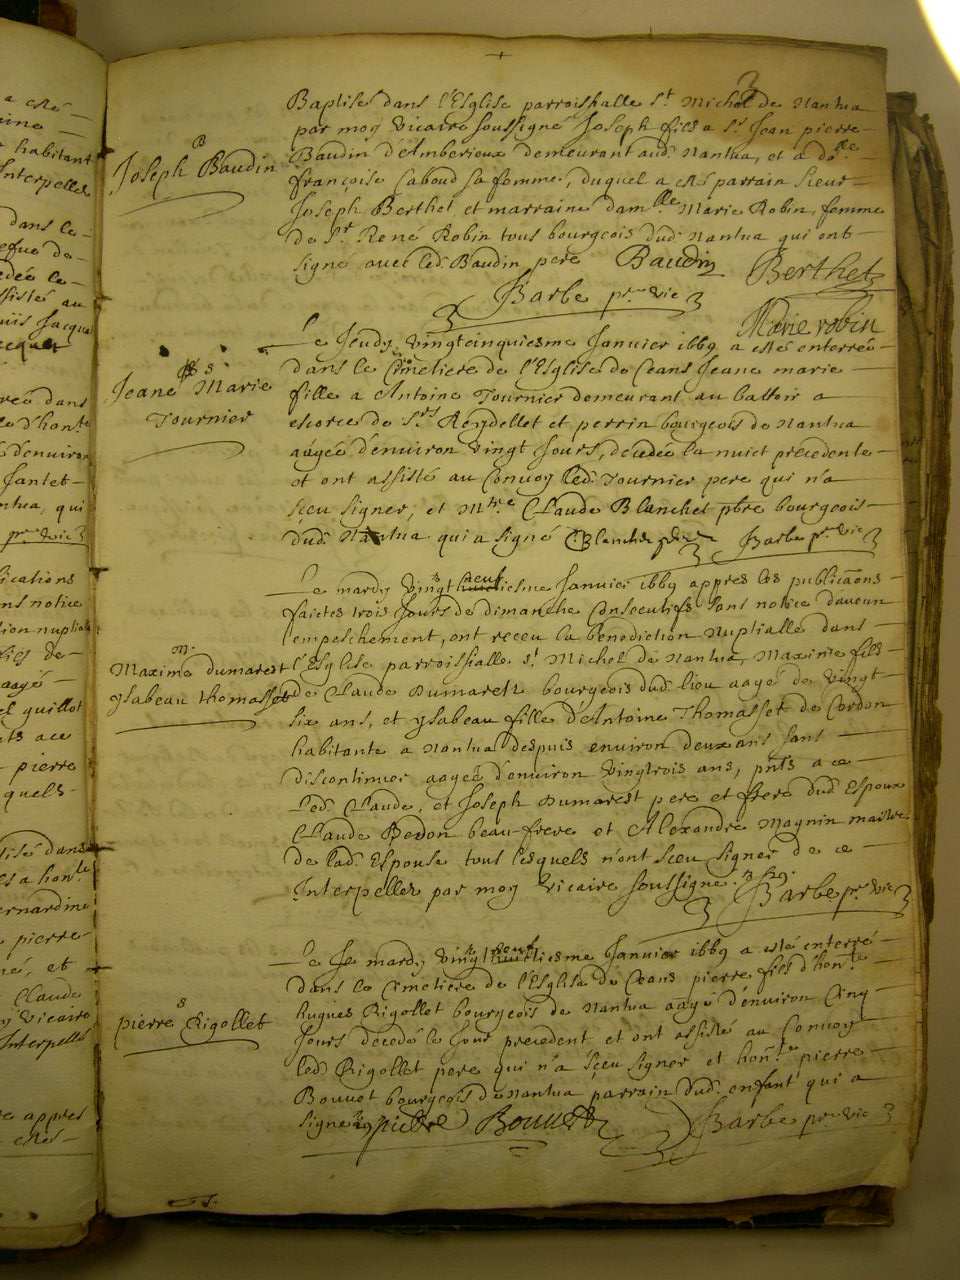 3
B
Joseph Baudin
Baptisé dans l'Esglise parroishialle St Michel de Nantua
par moy vicaire soussigné Joseph fils a Sr Jean pierre
Baudin d'Amberieux demeurant aud. Nantua, et a dlle
françoise Caboud sa femme, duquel a esté parrain Sieur
Joseph Berthet et marraine damlle Marie Robin, femme
de Sr René Robin tous bourgeois dud. Nantua qui ont
signé avec led. Baudin pere Baudin Berthet
Barbe pr. vic
Marie robin
S
Jeane Marie
Tournier
Le Jeudy vingtcinquiesme Januier 1669 a esté enterré
dans le Cimetiere de l'Esglise de Ceans Jeane marie
fille a Antoine Tournier demeurant au battoir a
escorce de Srs Reydellet et perrin bourgeois de Nantua
aagée d'enuiron vingt Jours, decedée la nuict precedente
et ont assisté au Convoy led. Tournier pere qui n'a
sceu signer, et Mtre Claude Blanchet pbre bourgeois
dud. Nantua qui a signé C Blanchet pbre Barbe pr. vic
M.
Maxime dumarest
ysabeau thomasset
Le mardy vingt neuf iesme Januier 1669 appres les publicaons
faictes trois Jours de dimanche Consecutifs sans notice d'aucun
empeschement, ont receu la benediction Nuptialle dans
l'Esglise parroissialle St Michel de Nantua, Maxime fils
de Claude Dumarest bourgeois dud. lieu aagé de vingt
six ans, et ysabeau fille d'Antoine Thomasset de Cordon
habitante a Nantua despuis enuiron deux ans sans
discontinuer aagée d'enuiron vingtrois ans, pnts a ce
led. Claude, et Joseph Dumarest pere et frere dud. Espoux
Claude Bedon beau-frere et Alexandre Magnin maitre
de lad. Espouse tous lesquels n'ont sceu signer de ce
Interpellez par moy vicaire soussigné Barbe pr. vic
S
pierre Rigollet
Le mardy vingt neuf iesme Januier 1669 a esté enterré
dans le Cimetiere de l'Esglise de Ceans pierre fils d'honte
hugues Rigollet bourgeois de Nantua aagé d'enuiron Cinq
Jours decedé le Jour precedent et ont assisté au Convoy
led. Rigollet pere qui n'a sceu signer et honte pierre
Bouuet bourgeois de Nantua parrain dud. enfant qui a
signé pierre Bouuet Barbe pr. vic